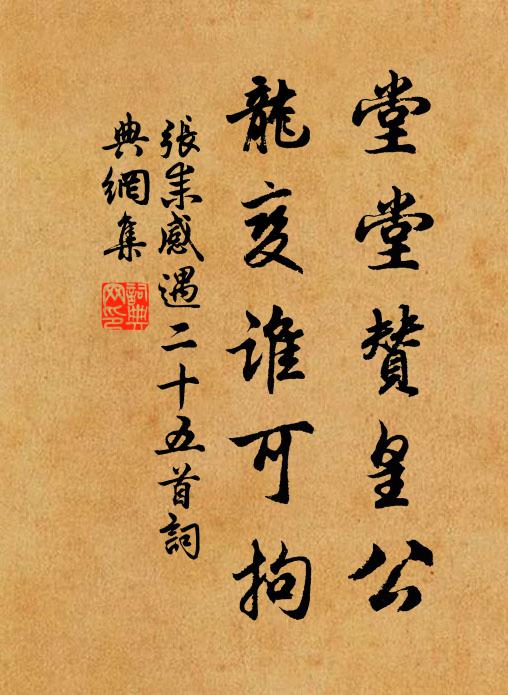 堂堂贊皇公
龍變誰可拘
張耒感遇二十五首詞
典網集
詞典
网印